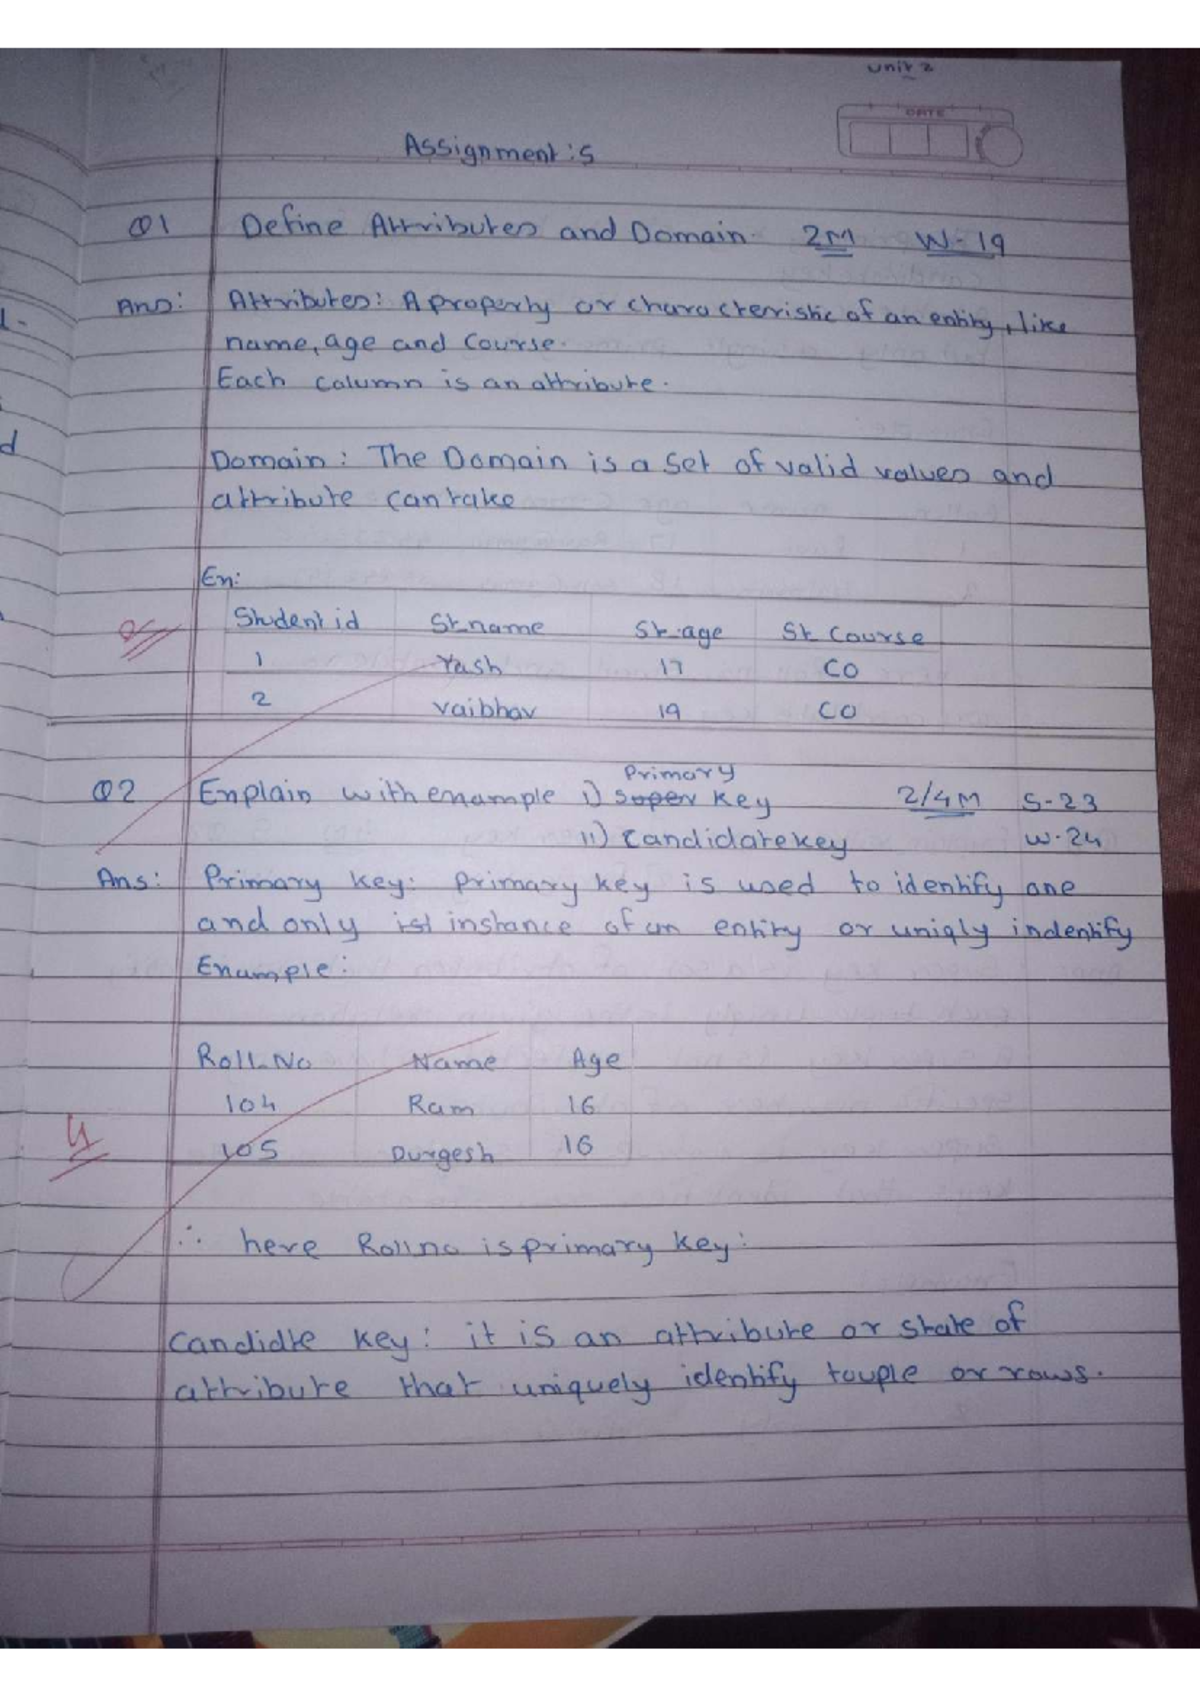 unit 2
DATE
Assignment : 5
Q1 Define Attributes and Domain. 2M W-19
Ans: Attributes: A property or characterristic of an entity, like
name, age and Course.
Each column is an attribute.
Domain : The Domain is a set of valid values and
attribute can take
En:
Student id St.name St.age St Course
1 Yash 17 CO
2 vaibhav 19 CO
Primary
Q2 Explain with enample i) super key 2/4M S-23
ii) Candidate key W-24
Ans: Primary key: primary key is used to identify one
and only instance of an entity or uniqly indentify
Enample:
Roll.No Name Age
104 Ram 16
105 Durgesh 16
∴ here Rollno is primary key:
4
Candidte key: it is an attribute or state of
attribute that uniquely identify touple or rows.